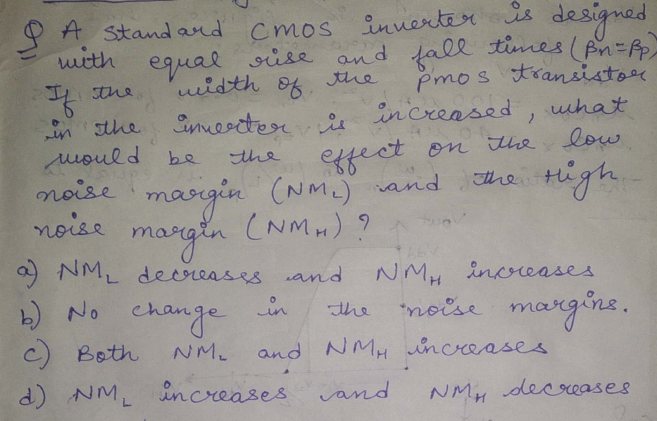 Q A standard CMOS inverter is designed
with equal rise and fall times (βn=βp)
If the width of the pmos transistor
in the inverter is increased, what
would be the effect on the low
noise margin (NML) and the High
noise margin (NMH)?
a) NML decreases and NMH increases
b) No change in the noise margins.
c) Both NML and NMH increases
d) NML increases and NMH decreases